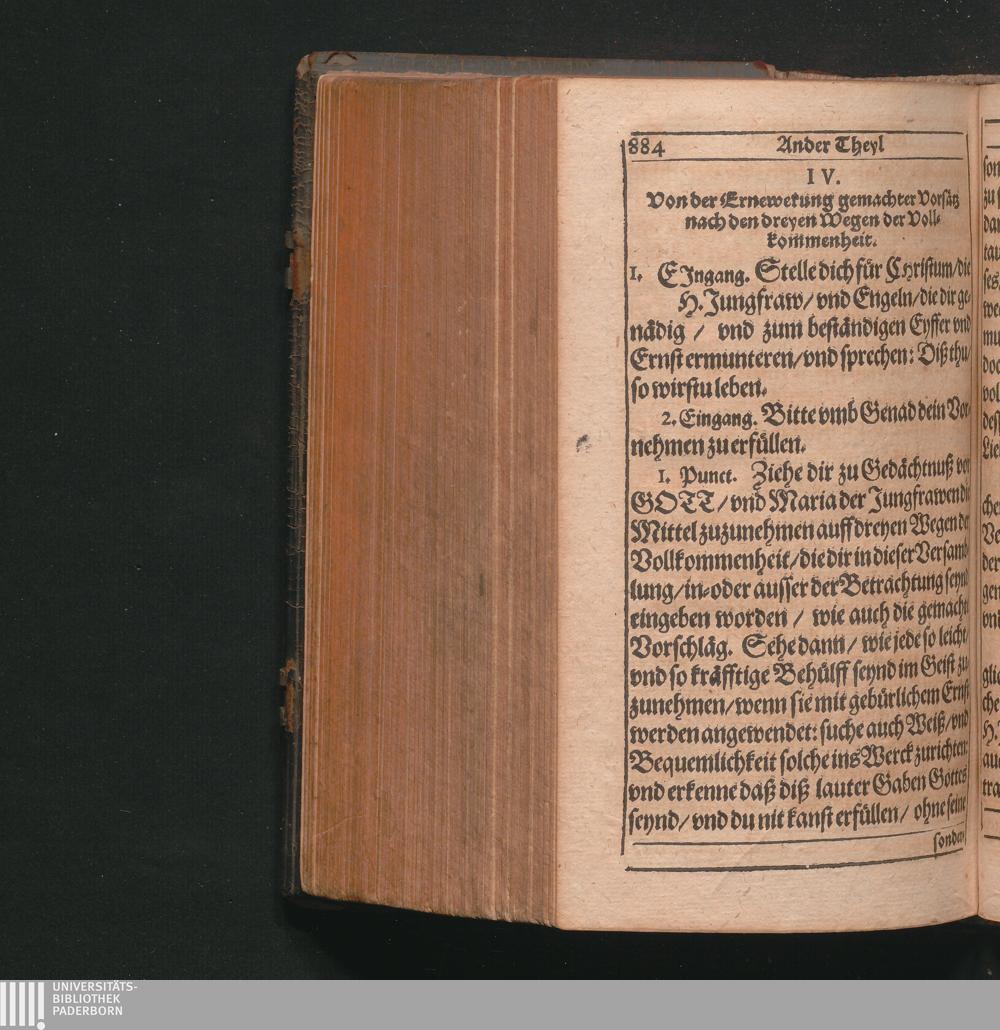 884 Ander Theyl
IV.
Von der Ernewerung gemachter Vorsätz
nach den dreyen Wegen der Voll-
kommenheit.
1. EIngang. Stelle dich für Christum/die
H. Jungfraw/ vnd Engeln/die dir ge-
nädig / vnd zum beständigen Eyffer vnd
Ernst ermunteren/vnd sprechen: Diß thu/
so wirstu leben.
2. Eingang. Bitte vmb Genad dein Vor-
nehmen zu erfüllen.
1. Punct. Ziehe dir zu Gedächtnuß vor
GOTT/vnd Maria der Jungfrawen die
Mittel zuzunehmen auff dreyen Wegen der
Vollkommenheit/die dir in dieser Versamb-
lung/in-oder ausser der Betrachtung seynd
eingeben worden / wie auch die gemachte
Vorschläg. Sehe dann/ wie jede so leicht/
vnd so kräfftige Behülff seynd im Geist zu-
zunehmen/wenn sie mit gebürlichem Ernst
werden angewendet: suche auch Weiß/vnd
Bequemlichkeit solche ins Werck zurichten:
vnd erkenne daß diß lauter Gaben Gottes
seynd/ vnd du nit kanst erfüllen/ ohne seine
sonder-
UNIVERSITÄTS-
BIBLIOTHEK
PADERBORN